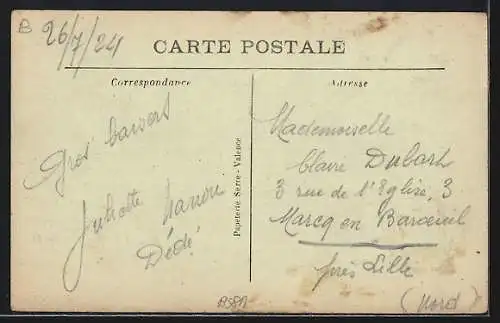 B 26/7/24
CARTE POSTALE
Correspondance
Adresse
Gros baisers
Juliette Nanou
Dédé
Papeterie Serre - Valence
Mademoiselle
Claire Dubart
3 rue de l'Eglise, 3
Marcq en Baroeuil
près Lille
(Nord)